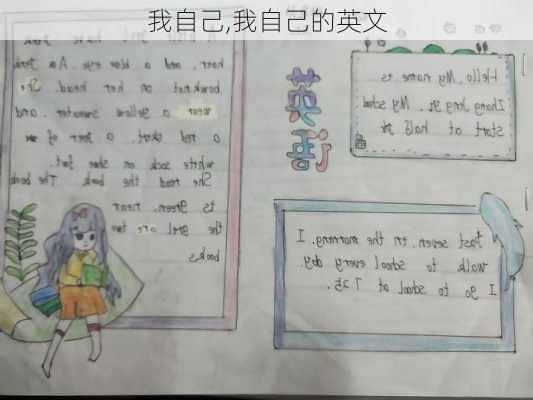 我自己,我自己的英文
A little girl have pink
hair. and a blue eye. A a pink
bowknot on her head. She
wear a yellow sweater. and
a red skirt. a pair of
white sock on shoe foot.
She read the book. The book
is green. near
the girl are two
books
英语
Hello. My name is
Zhang Jong yi. My school
start at half past
Past seven. in the morning. I
walk to school every day
I go to school at 7:25.